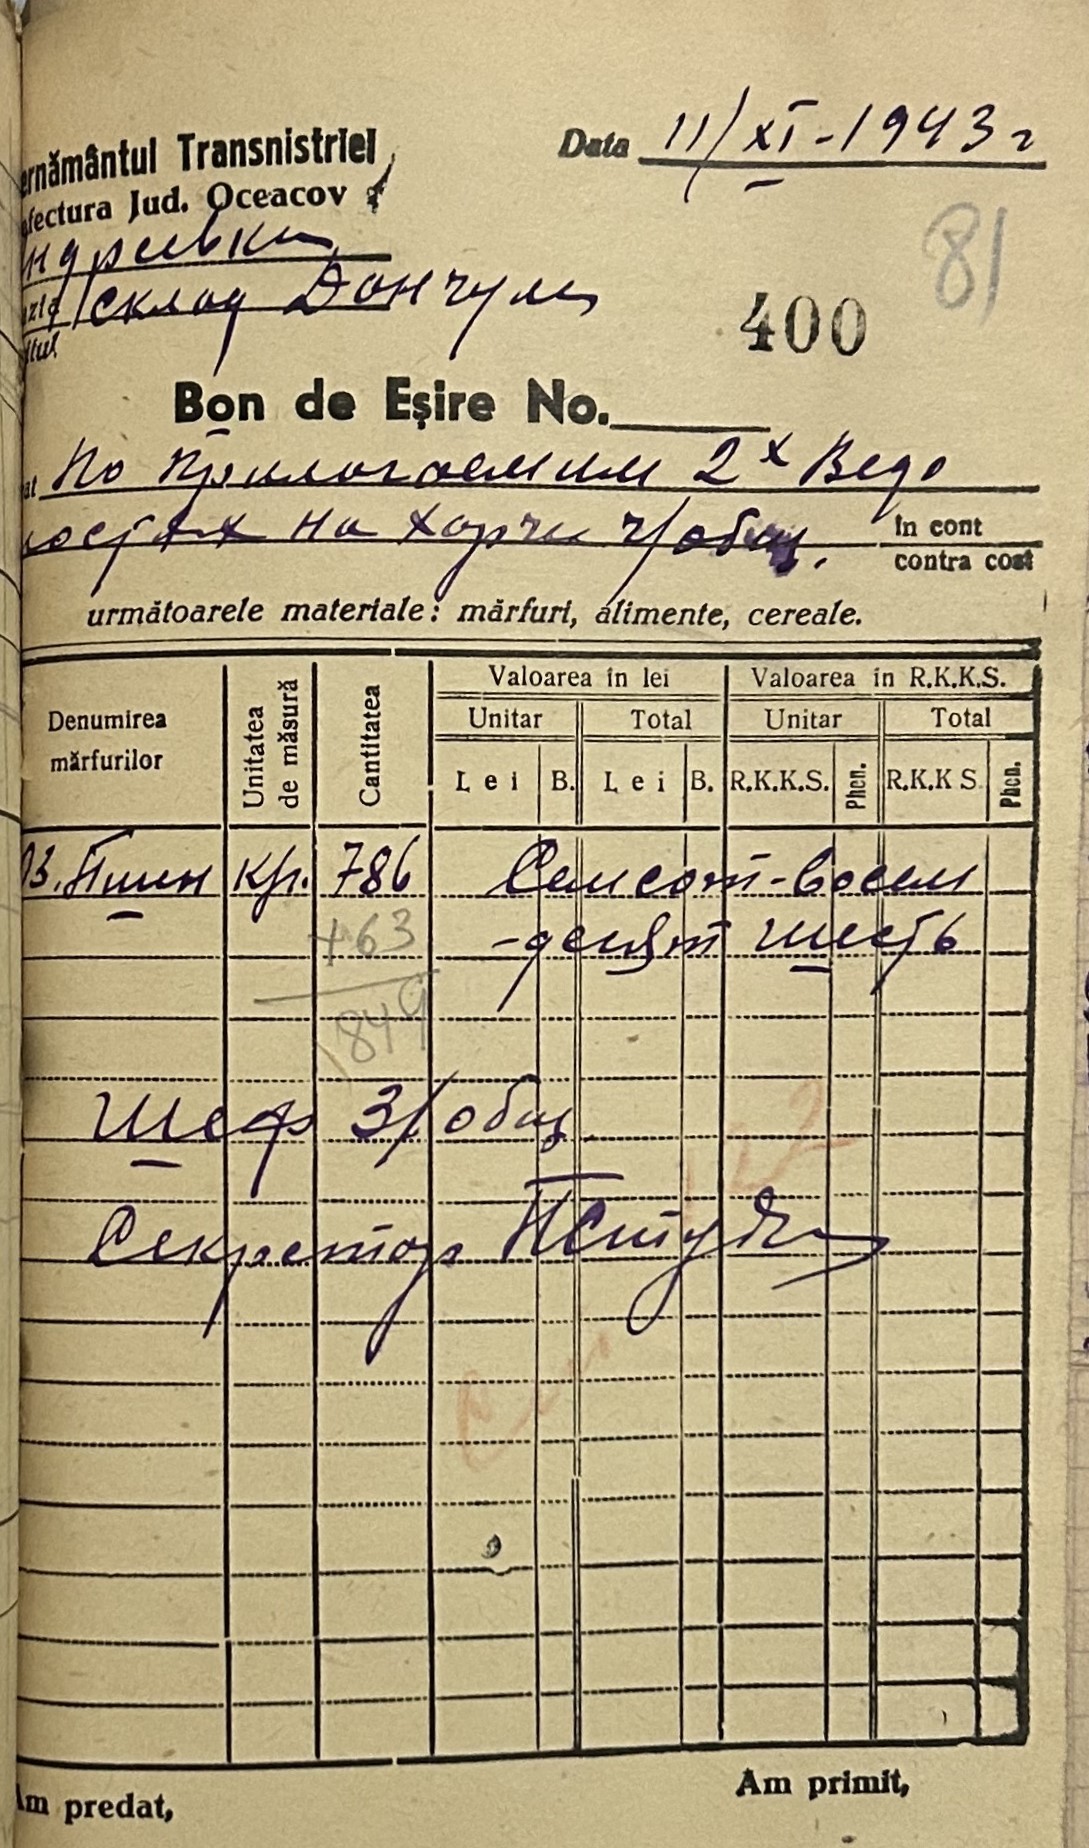 ernământul Transnistriei
efectura Jud. Oceacov
Data 11/XI-1943 г
ндреевка
81
склад Дончул
400
Bon de Eșire No.
По прилогаемим 2х Ведо
мостях на харчи г/общ.
în cont
contra cost
următoarele materiale: mărfuri, alimente, cereale.
Denumirea mărfurilor
Unitatea de măsură
Cantitatea
Valoarea în lei
Valoarea in R.K.K.S.
Unitar
Total
Unitar
Total
Lei
B.
Lei
B.
R.K.K.S.
Phen.
R.K.K S.
Phen.
Оз. Пшен кгр. 786 Семсот-восем
+63 -десят шесть
849
Шеф З/общ
Секретар
Am predat,
Am primit,